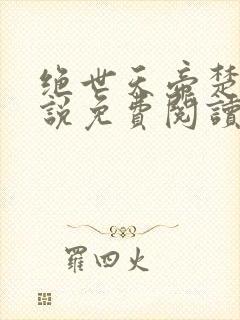 绝世天帝楚
說免費閱讀
羅四火